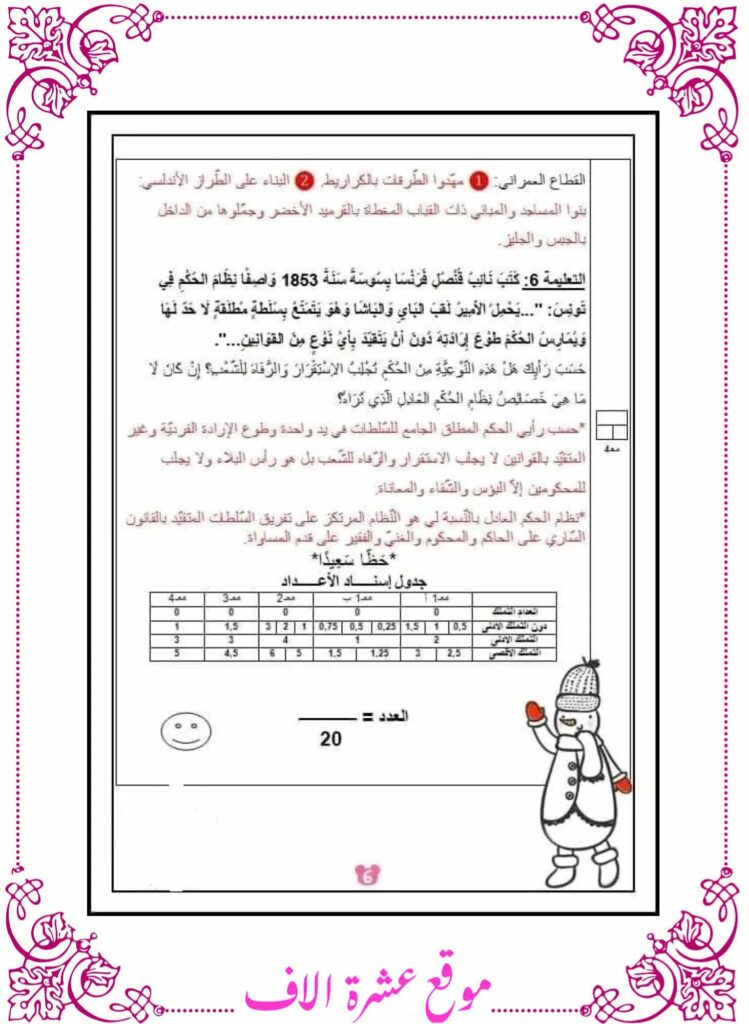 القطاع العمراني: 1 مهّدوا الطّرقات بالكراريط. 2 البناء على الطّراز الأندلسي:
بنوا المساجد والمباني ذات القباب المغطاة بالقرميد الأخضر وجمّلوها من الداخل
بالجبس والجليز.
التعليمة 6: كَتَبَ نَائِبُ قُنْصُلِ فَرَنْسَا بِسُوسَةَ سَنَةَ 1853 وَاصِفًا نِظَامَ الحُكْمِ فِي
تُونِسَ: "...يَحْمِلُ الأَمِيرُ لَقَبَ البَايِ وَالبَاشَا وَهُوَ يَتَمَتَّعُ بِسُلْطَةٍ مُطْلَقَةٍ لَا حَدَّ لَهَا
وَيُمَارِسُ الحُكْمَ طَوْعَ إِرَادَتِهِ دُونَ أَنْ يَتَقَيَّدَ بِأَيِّ نَوْعٍ مِنَ القَوَانِينِ...".
حَسَبَ رَأْيِكَ هَلْ هَذِهِ النَّوْعِيَّةِ مِنَ الحُكْمِ تَجْلِبُ الاِسْتِقْرَارَ وَالرَّفَاهَ لِلشَّعْبِ؟ إِنْ كَانَ لَا
مَا هِيَ خَصَائِصُ نِظَامِ الحُكْمِ العَادِلِ الَّذِي تُرَادُ؟
*حسب رأيي الحكم المطلق الجامع للسّلطات في يد واحدة وطوع الإرادة الفرديّة وغير
المتقيّد بالقوانين لا يجلب الاستقرار والرّفاه للشّعب بل هو رأس البلاء ولا يجلب
للمحكومين إلاّ البؤس والشّقاء والمعاناة.
*نظام الحكم العادل بالنّسبة لي هو النّظام المرتكز على تفريق السّلطات المتقيّد بالقانون
السّاري على الحاكم والمحكوم والغنيّ والفقير على قدم المساواة.
مع4
*حَظًّا سَعِيدًا*
جدول إسنـــاد الأعـــداد
مع1 أ مع1 ب مع2 مع3 مع4
انعدام التملك 0 0 0 0 0
دون التملك الأدنى 0,5 1 1,5 0,25 0,5 0,75 1 2 3 1,5 1
التملك الأدنى 2 1 4 3 3
التملك الأقصى 2,5 3 1,25 1,5 5 6 4,5 5
العدد = ـــــــ
20
6
موقع عشرة الاف